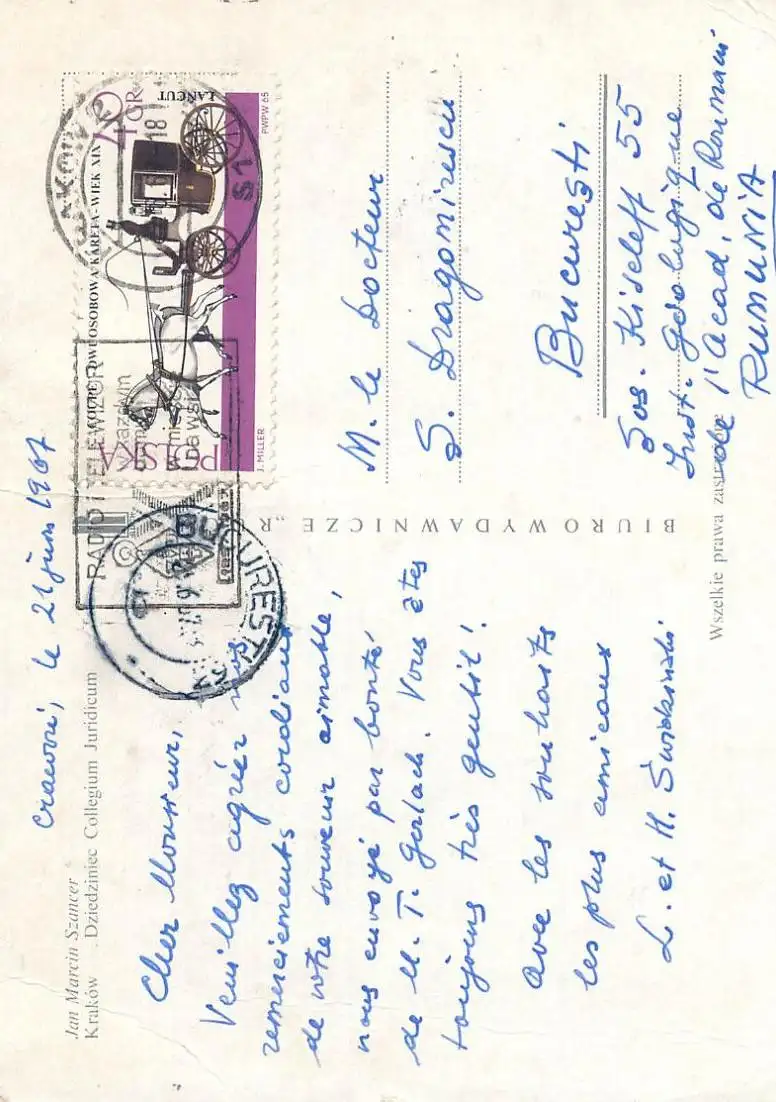 Jan Marcin Szancer
Kraków . Dziedziniec Collegium Juridicum
Cracovie, le 21 juin 1967
Cher Monsieur,
Veuillez agréer nos
remerciements cordiaux
de votre souvenir aimable,
nous envoyé par bonté
de M. T. Gerlach. Vous êtes
toujours très gentil!
Avec les souhaits
les plus amicaux
L. et H. Świdziński
BIURO WYDAWNICZE „RU
Wszelkie prawa zastrzeżone
POLSKA
40 GR
COUPE, DWUOSOBOWA KARETA - WIEK XIX
ŁAŃCUT
J. MILLER
PWPW 65
KRAKÓW 2
18
RADIO I TELEWIZOR
w każdym
BUCUREȘTI
M. le Docteur
S. Dragomirescu
București
Șos. Kiseleff 55
Inst. Géologique
de l'Acad. de Roumani
RUMUNIA